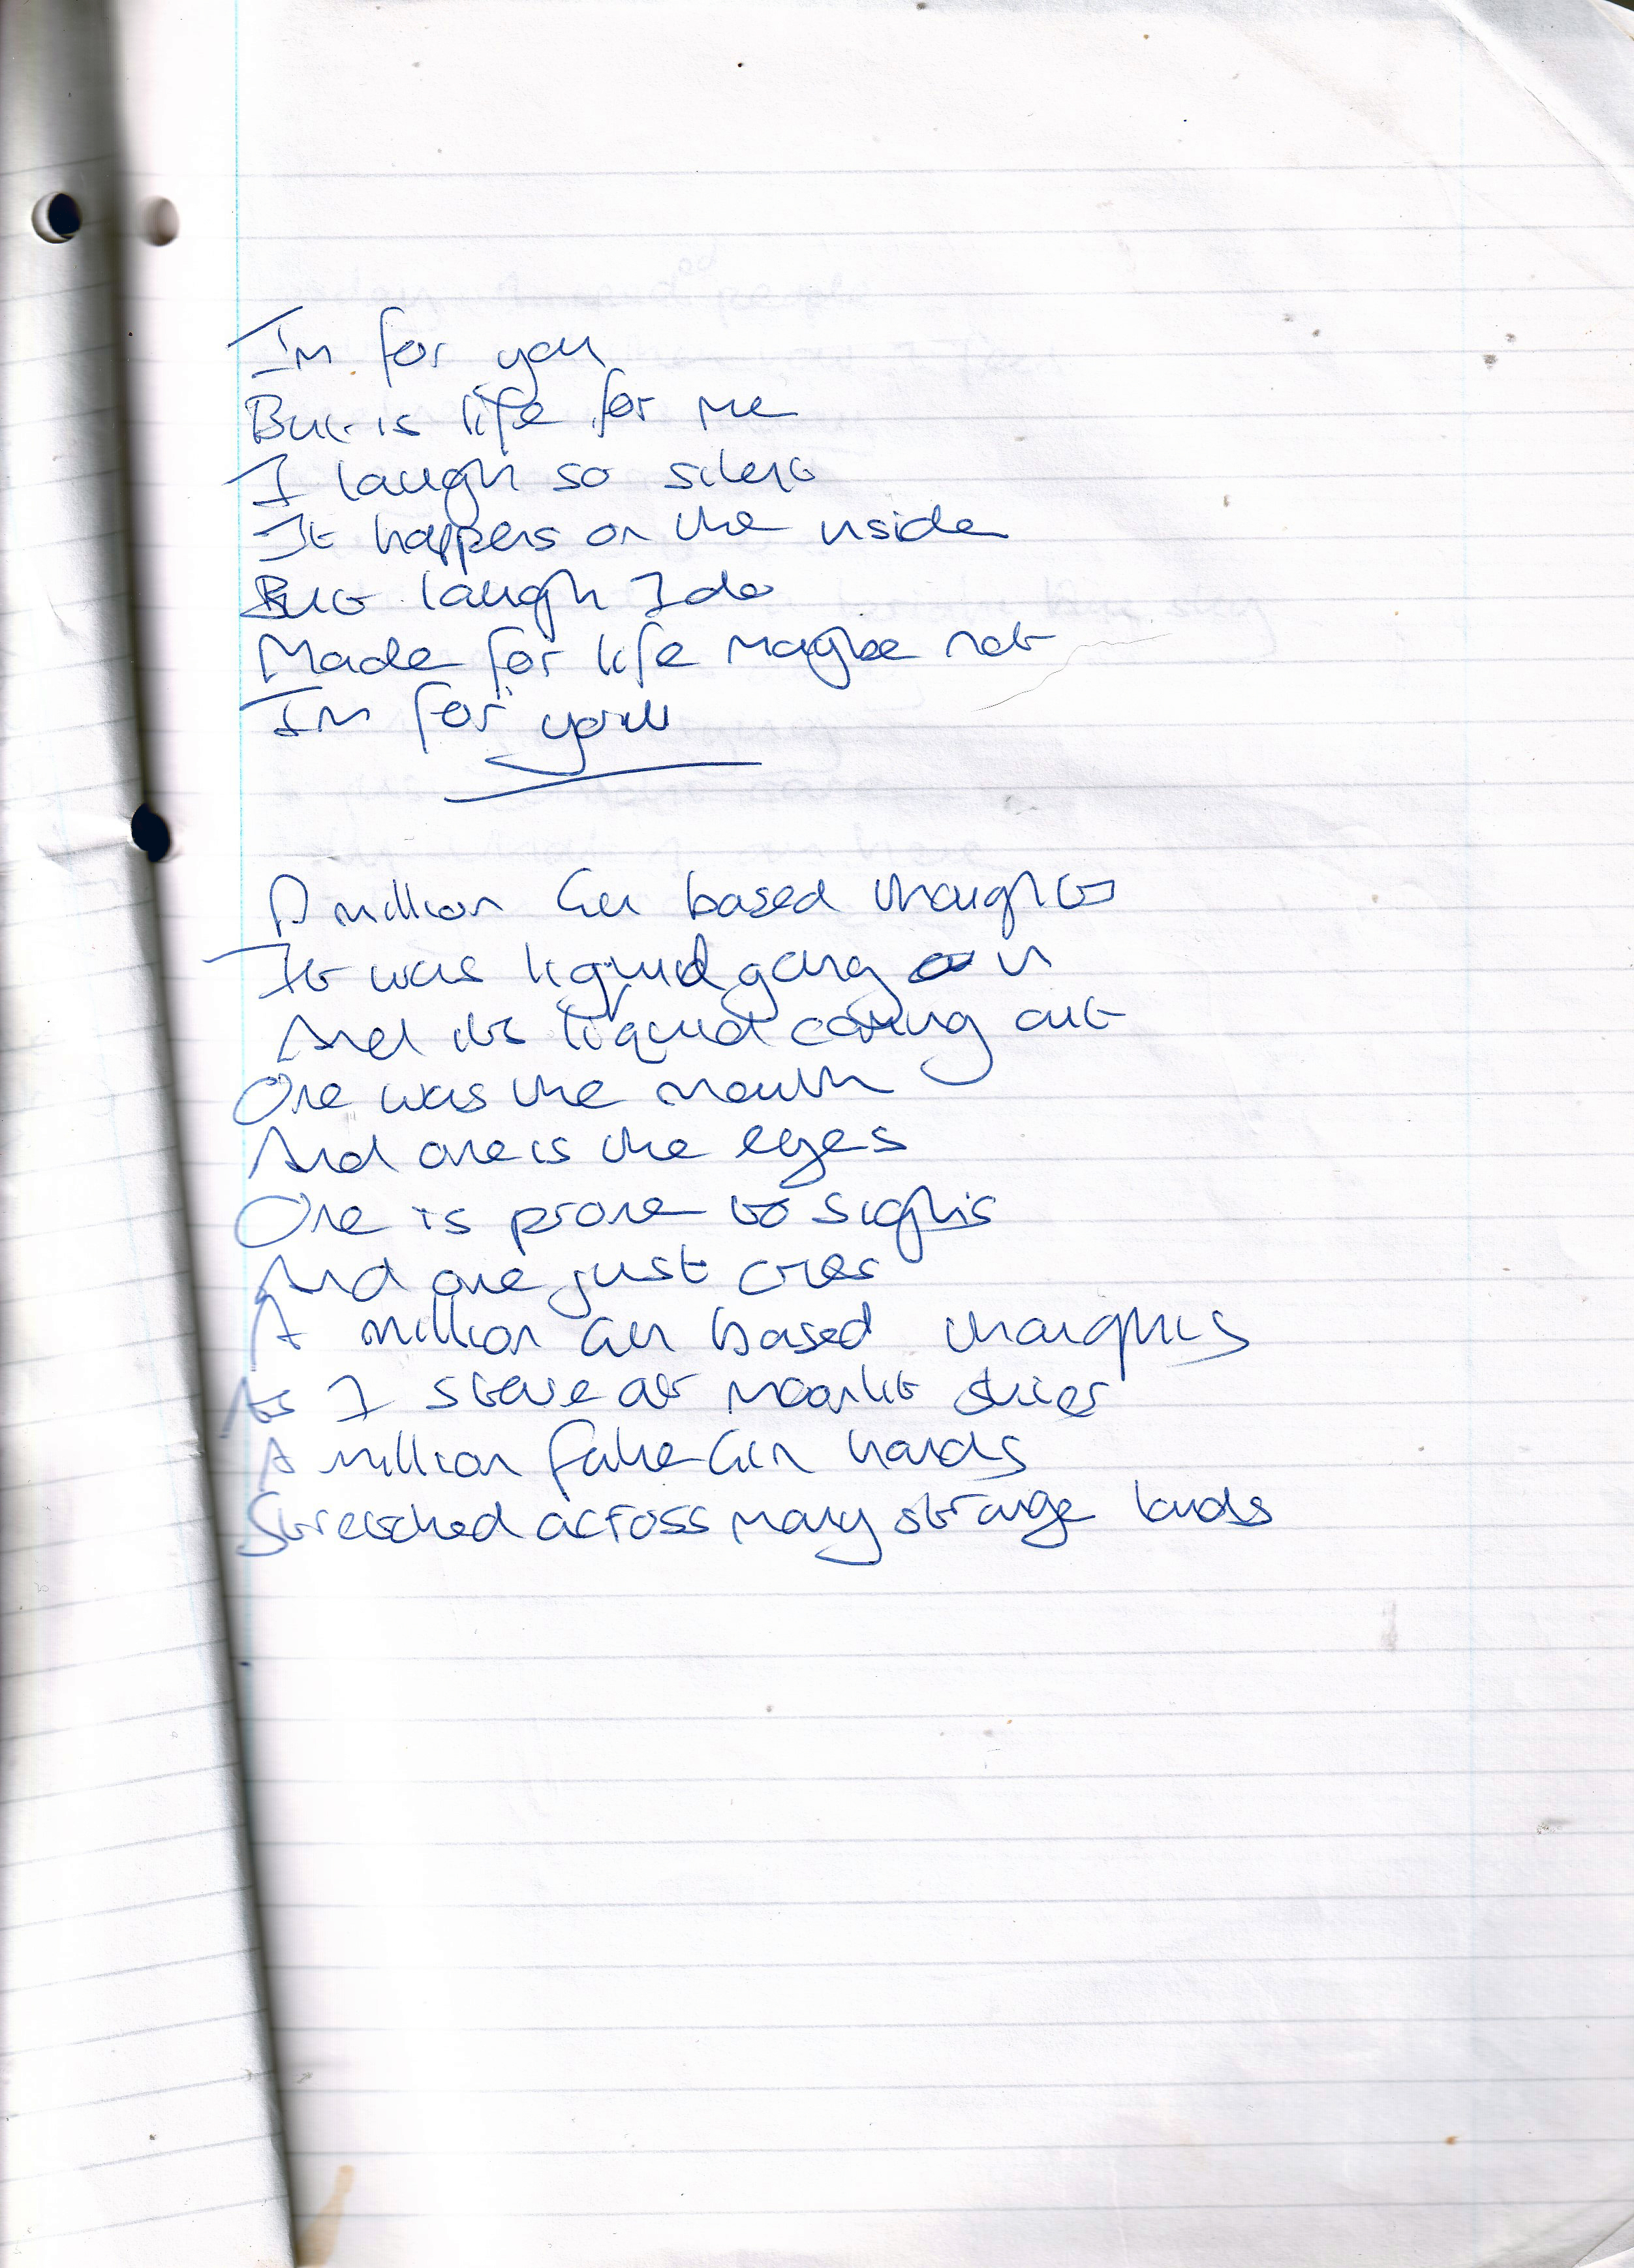 Im for you
But is life for me
I laugh so silent
It happens on the inside
But laugh I do
Made for life maybe not
Im for you
A million Gin based thoughts
It was liquid going in
And its liquid coming out
One was the mouth
And one is the eyes
One is prone to sighs
And one just cries
A million Gin based thoughts
As I stare at moonlit skies
A million fake Gin hands
Stretched across many strange lands